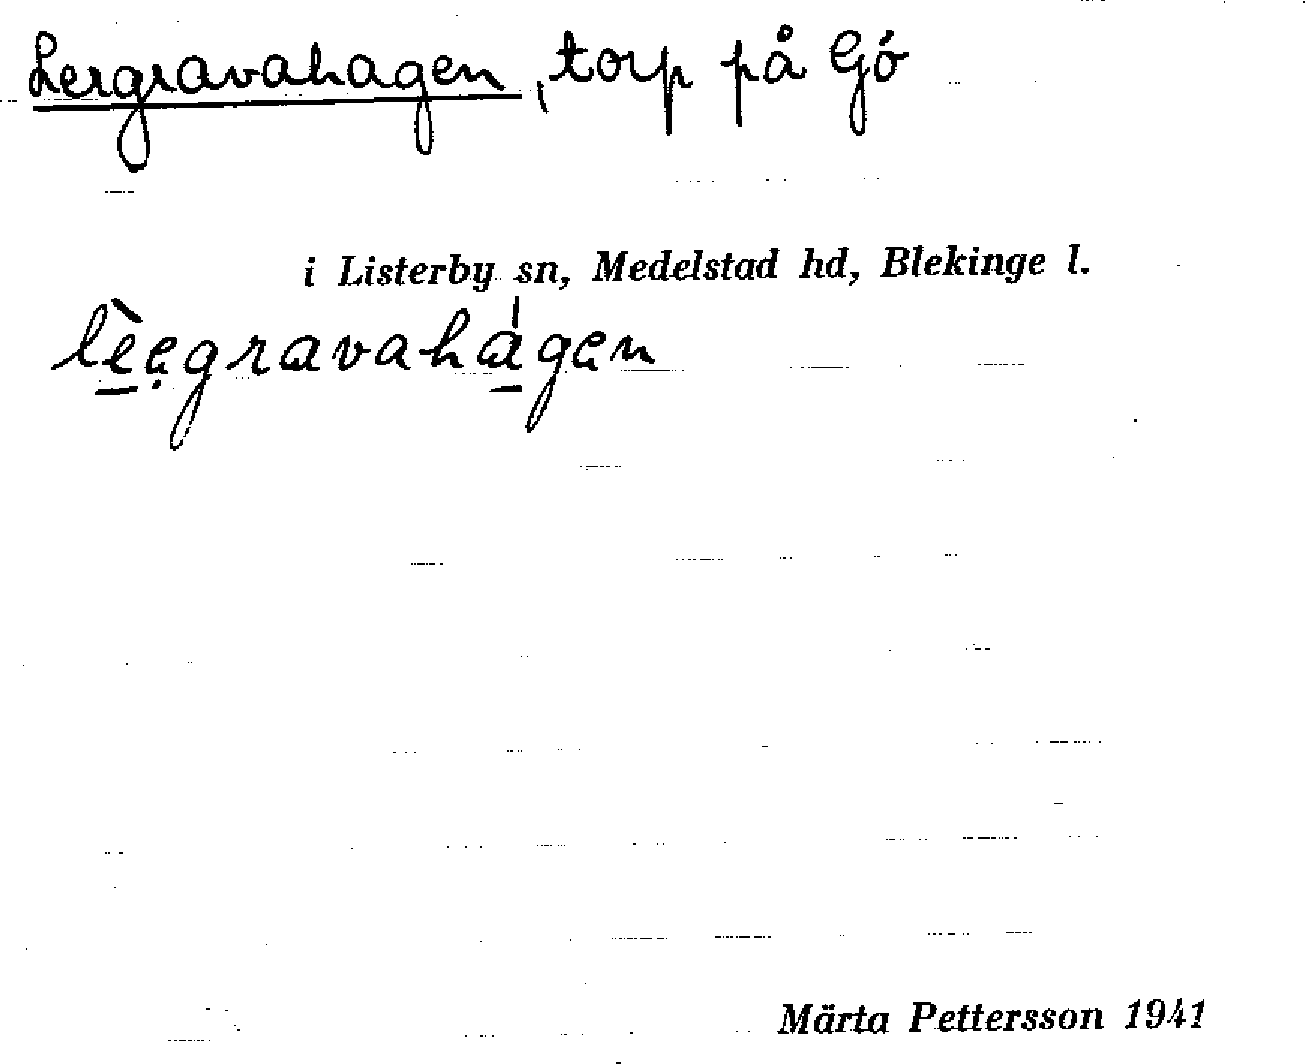 Lergravahagen, torp på Gö
i Listerby sn, Medelstad hd, Blekinge l.
lè̲ẹgravahá̲gen
Märta Pettersson 1941